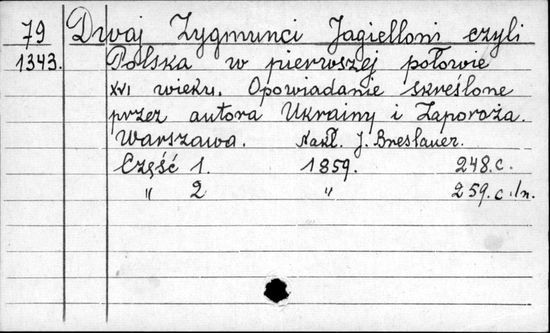 79 Dwaj Zygmunci Jagielloni czyli
1343. Polska w pierwszej połowie
XVI wieku. Opowiadanie skreślone
przez autora Ukrainy i Zaporoża.
Warszawa. Nakł. J. Breslauer.
Część 1. 1859. 248.c.
" 2 " 259.c.